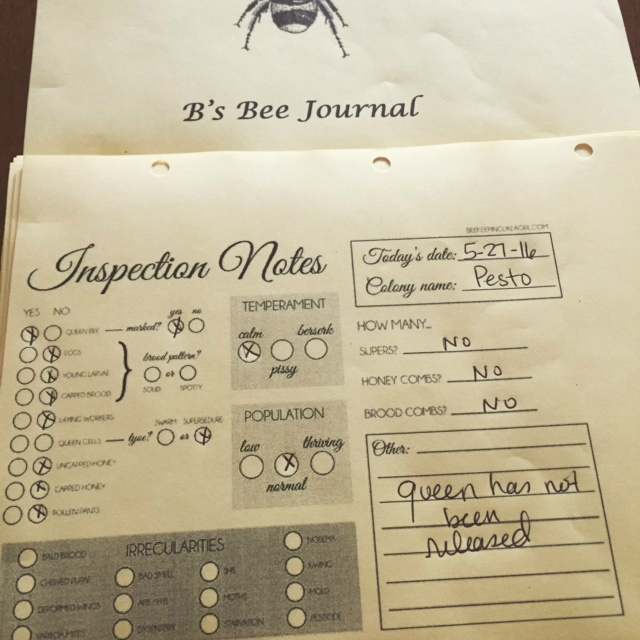 B's Bee Journal
BEEKEEPINGLIKEAGIRL.COM
Inspection Notes
Today's date: 5-27-16
Colony name: Pesto
YES NO
QUEEN BEE marked? yes no
EGGS
YOUNG LARVAE
CAPPED BROOD
brood pattern?
or
SOLID SPOTTY
LAYING WORKERS
QUEEN CELLS type? SWARM or SUPERSEDURE
UNCAPPED HONEY
CAPPED HONEY
POLLEN PANTS
TEMPERAMENT
calm berserk
pissy
POPULATION
low thriving
normal
HOW MANY...
SUPERS? NO
HONEY COMBS? NO
BROOD COMBS? NO
Other:
queen has not
been
released
IRREGULARITIES
BALD BROOD
CHEWED PUPAE
DEFORMED WINGS
VARROA MITES
BAD SMELL
DYSENTERY
SHB
MOTHS
STARVATION
NOSEMA
K-WING
MOLD
PESTICIDE